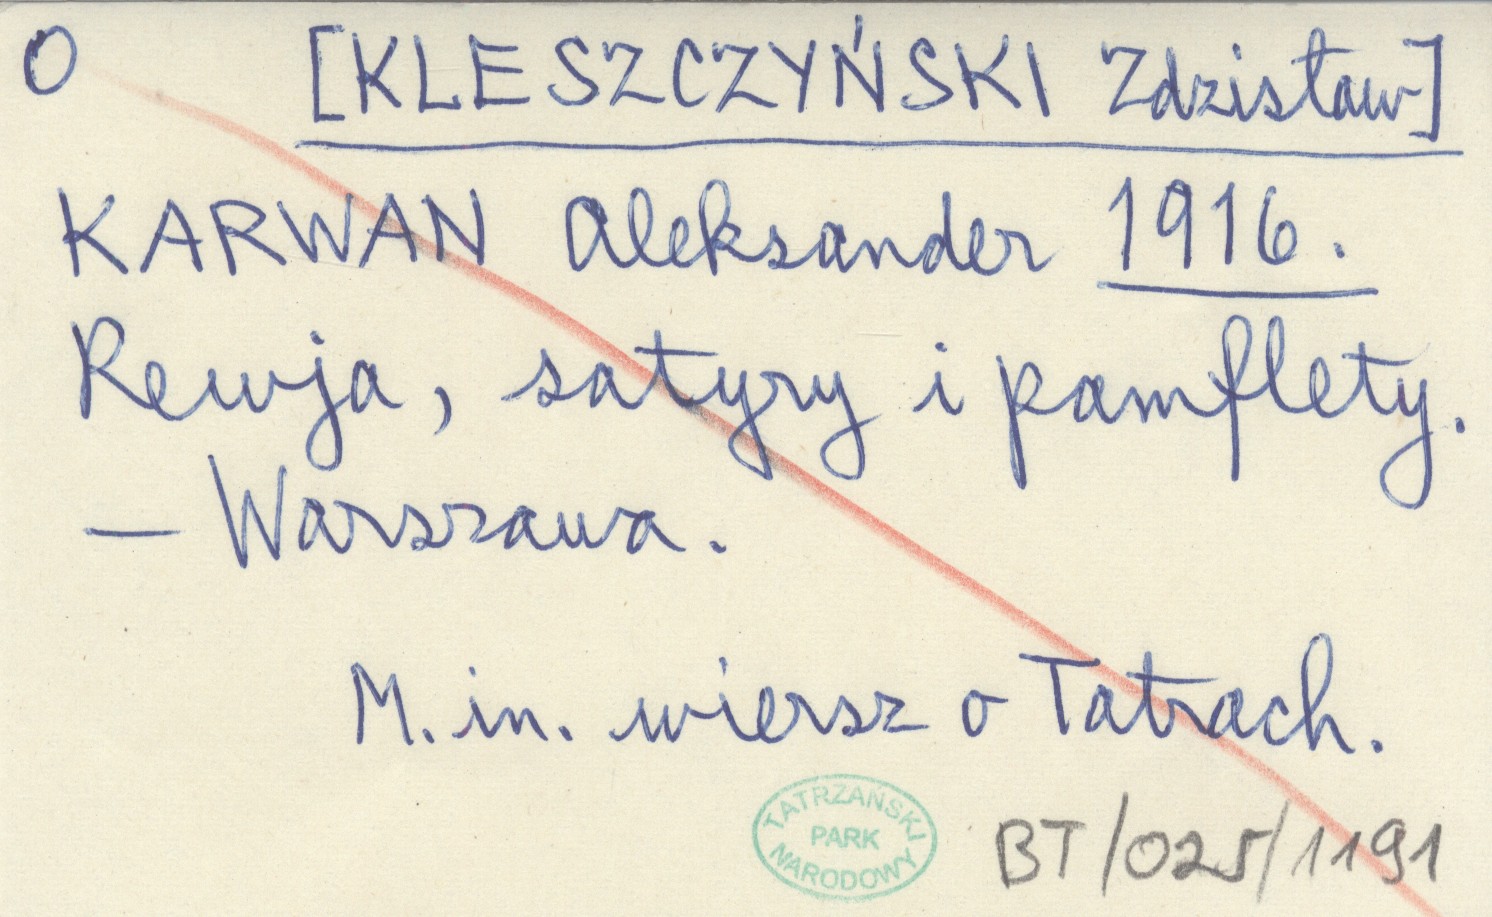 O [KLESZCZYŃSKI Zdzisław]
KARWAN Aleksander 1916.
Rewja, satyry i pamflety.
— Warszawa.
M. in. wiersz o Tatrach.
TATRZAŃSKI
PARK
NARODOWY
BT/025/1191